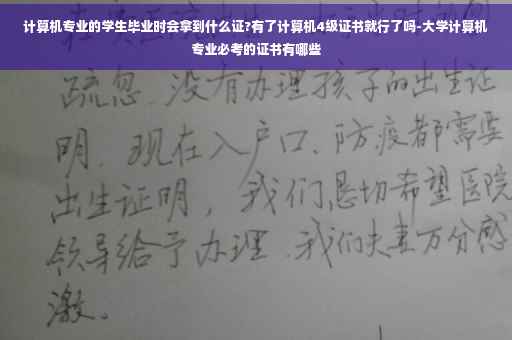 计算机专业的学生毕业时会拿到什么证?有了计算机4级证书就行了吗-大学计算机
专业必考的证书有哪些
疏忽.没有办理孩子的出生证
明.现在入户口、防疫都需要
出生证明，我们恳切希望医院
领导给予办理.我们夫妻万分感
激.